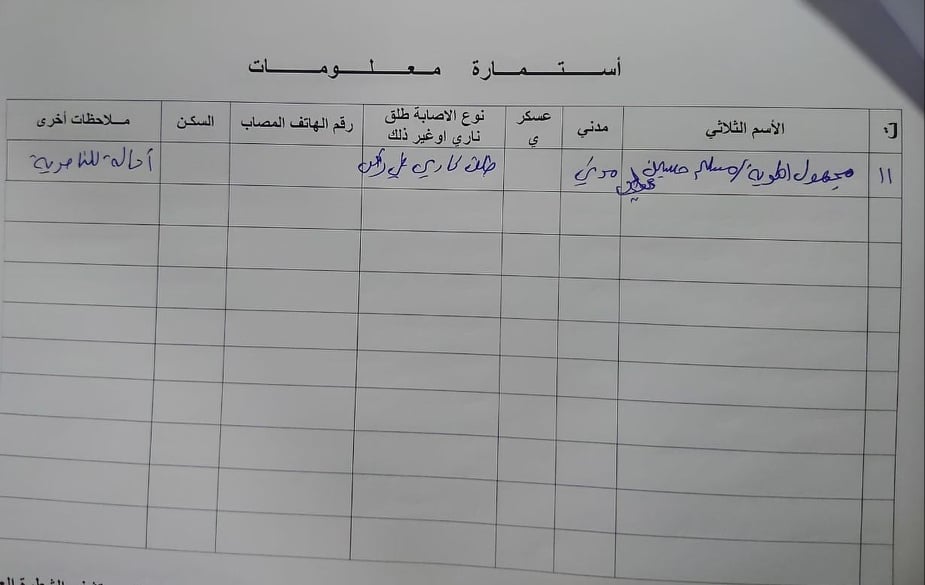 أستمارة معلومات
ت
الأسم الثلاثي
مدني
عسكري
نوع الاصابة طلق
ناري اوغير ذلك
رقم الهاتف المصاب
السكن
ملاحظات أخرى
١١
مجهول الهوية / مسلم حسين
مدني
طلق ناري
أحالة للناصرية